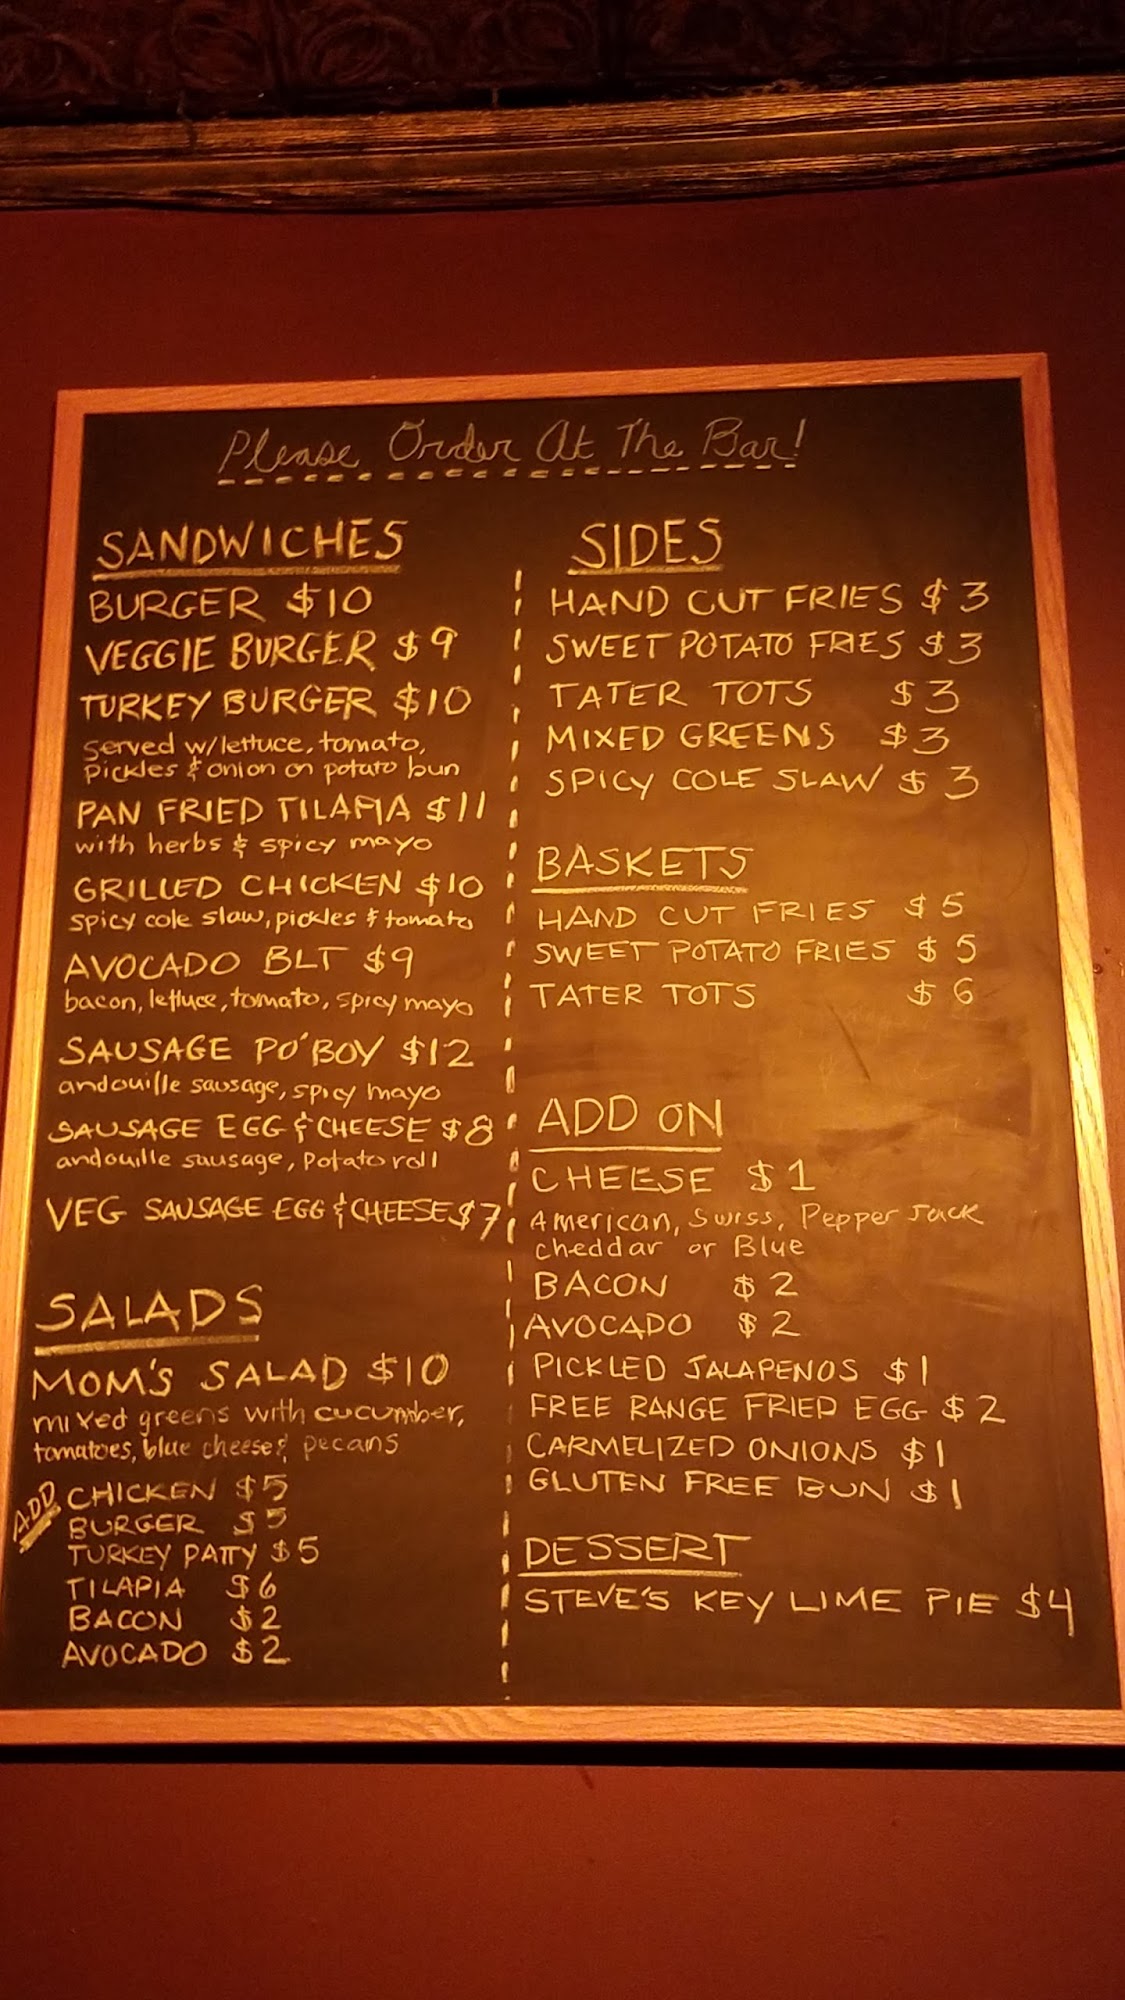 Please Order At The Bar!
SANDWICHES
BURGER $10
VEGGIE BURGER $9
TURKEY BURGER $10
served w/lettuce, tomato,
pickles & onion on potato bun
PAN FRIED TILAPIA $11
with herbs & spicy mayo
GRILLED CHICKEN $10
spicy cole slaw, pickles & tomato
AVOCADO BLT $9
bacon, lettuce, tomato, spicy mayo
SAUSAGE PO'BOY $12
andouille sausage, spicy mayo
SAUSAGE EGG & CHEESE $8
andouille sausage, potato roll
VEG SAUSAGE EGG & CHEESE $7
SALADS
MOM'S SALAD $10
mixed greens with cucumber,
tomatoes, blue cheese & pecans
ADD
CHICKEN $5
BURGER $5
TURKEY PATTY $5
TILAPIA $6
BACON $2
AVOCADO $2
SIDES
HAND CUT FRIES $3
SWEET POTATO FRIES $3
TATER TOTS $3
MIXED GREENS $3
SPICY COLE SLAW $3
BASKETS
HAND CUT FRIES $5
SWEET POTATO FRIES $5
TATER TOTS $6
ADD ON
CHEESE $1
American, Swiss, Pepper Jack
cheddar or Blue
BACON $2
AVOCADO $2
PICKLED JALAPENOS $1
FREE RANGE FRIED EGG $2
CARMELIZED ONIONS $1
GLUTEN FREE BUN $1
DESSERT
STEVE'S KEY LIME PIE $4